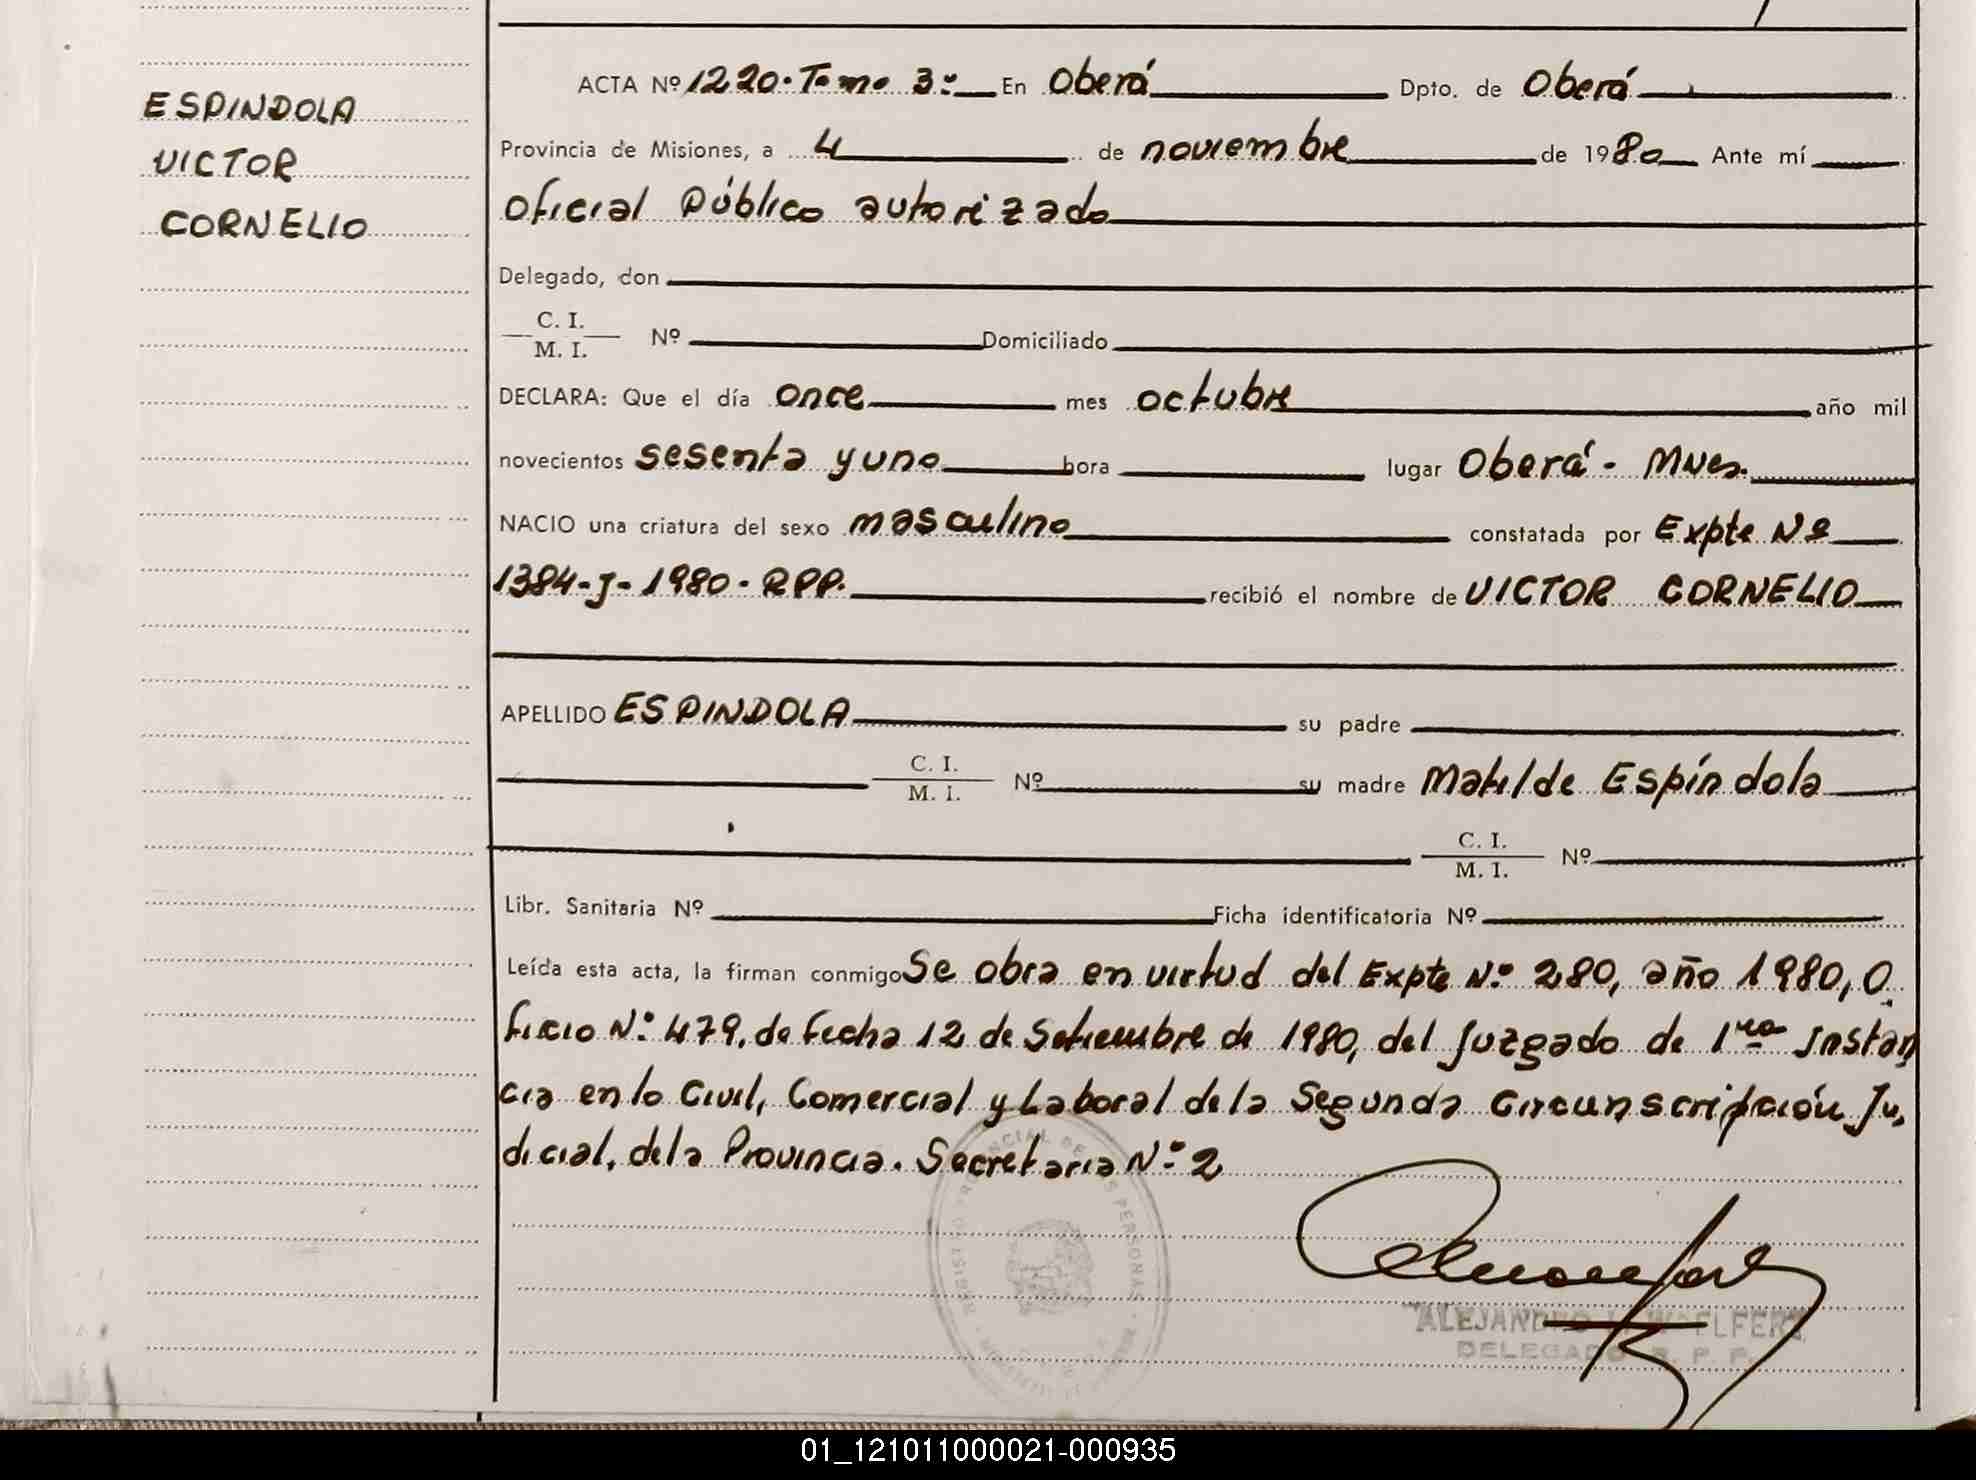 ESPINDOLA
VICTOR
CORNELIO
ACTA Nº 1220. Tomo 3º En Oberá Dpto. de Oberá
Provincia de Misiones, a 4 de noviembre de 1980 Ante mí
Oficial Público autorizado
Delegado, don
C. I.
M. I. Nº Domiciliado
DECLARA: Que el día once mes octubre año mil
novecientos sesenta y uno hora lugar Oberá - Mnes.
NACIO una criatura del sexo masculino constatada por Expte Nº
1384-J-1980. RPP. recibió el nombre de VICTOR CORNELIO
APELLIDO ESPINDOLA su padre
C. I.
M. I. Nº su madre Matilde Espíndola
C. I.
M. I. Nº
Libr. Sanitaria Nº Ficha identificatoria Nº
Leída esta acta, la firman conmigo Se obra en virtud del Expte Nº 280, año 1980, O
ficio Nº 479, de fecha 12 de Setiembre de 1980, del Juzgado de 1ra Instan
cia en lo Civil, Comercial y Laboral de la Segunda Circunscripción Ju,
dicial, de la Provincia. Secretaria Nº 2
REGISTRO PROVINCIAL DE LAS PERSONAS
ALEJANDRO WOELFERT
DELEGADO R. P. P.
01_121011000021-000935